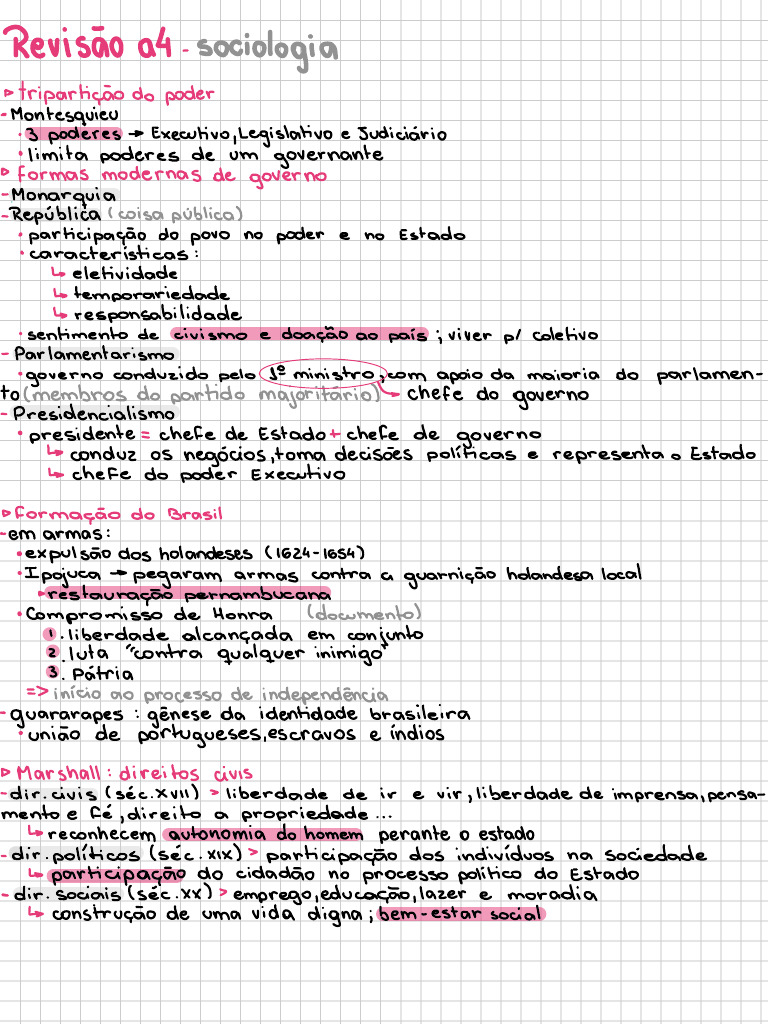 Revisão a4 - sociologia
▹ tripartição do poder
- Montesquieu
• 3 poderes → Executivo, Legislativo e Judiciário
• limita poderes de um governante
▹ formas modernas de governo
- Monarquia
- República (coisa pública)
• participação do povo no poder e no Estado
• características:
↳ eletividade
↳ temporariedade
↳ responsabilidade
• sentimento de civismo e doação ao país ; viver p/ coletivo
- Parlamentarismo
• governo conduzido pelo 1º ministro, com apoio da maioria do parlamen-
to (membros do partido majoritário) ↳ chefe do governo
- Presidencialismo
• presidente = chefe de Estado + chefe de governo
↳ conduz os negócios, toma decisões políticas e representa o Estado
↳ chefe do poder Executivo
▹ formação do Brasil
- em armas:
• expulsão dos holandeses (1624-1654)
• Ipojuca → pegaram armas contra a guarnição holandesa local
▸ restauração pernambucana
• Compromisso de Honra (documento)
1. liberdade alcançada em conjunto
2. luta "contra qualquer inimigo"
3. Pátria
=> início ao processo de independência
- guararapes : gênese da identidade brasileira
• união de portugueses, escravos e índios
▹ Marshall : direitos civis
- dir. civis (séc. XVII) > liberdade de ir e vir, liberdade de imprensa, pensa-
mento e fé, direito a propriedade ...
↳ reconhecem autonomia do homem perante o estado
- dir. políticos (séc. XIX) > participação dos indivíduos na sociedade
↳ participação do cidadão no processo político do Estado
- dir. sociais (séc. XX) > emprego, educação, lazer e moradia
↳ construção de uma vida digna ; bem-estar social